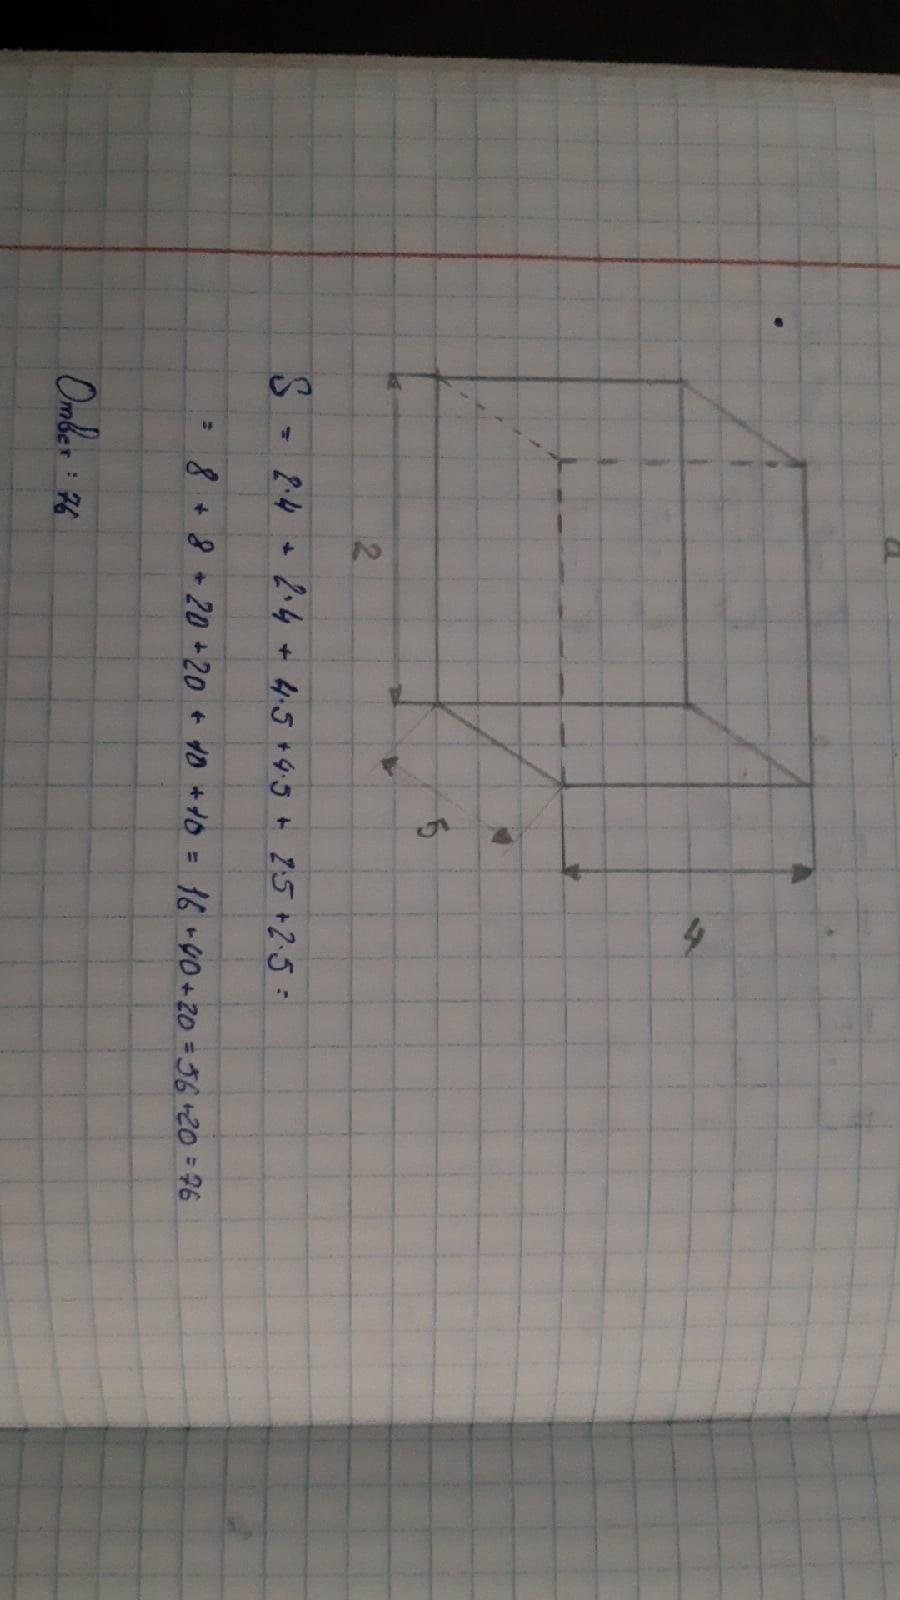 a
4
5
2
S = 2·4 + 2·4 + 4·5 + 4·5 + 2·5 + 2·5 =
= 8 + 8 + 20 + 20 + 10 + 10 = 16 + 40 + 20 = 56 + 20 = 76
Ответ: 76